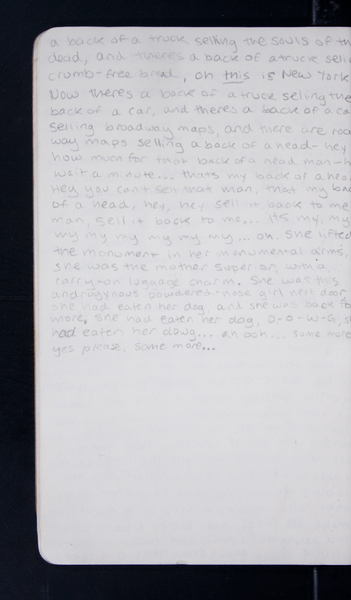 a back of a truck selling the souls of th
dead, and there's a back of a truck selli
crumb-free bread, oh this is New York
Now theres a back of a truck seling the
back of a car, and there's a back of a ca
selling broadway maps, and there are roa
way maps selling a back of a head - hey
how much for that back of a head man - h
wait a minute... thats my back of a hea
Hey you can't sell that man, that my back
of a head, hey, hey sell it back to me
man, sell it back to me... its my, my
my my my my my my... oh. She lifted
the monument in her monumental arms,
she was the mother superior, with a
carry-on luggage charm. She was this
androgynous powdered-nose girl next door
she had eaten her dog, and she was back for
more, she had eaten her dog, D-O-W-G, s
had eaten her dawg... an ooh... some more
yes please, some more...